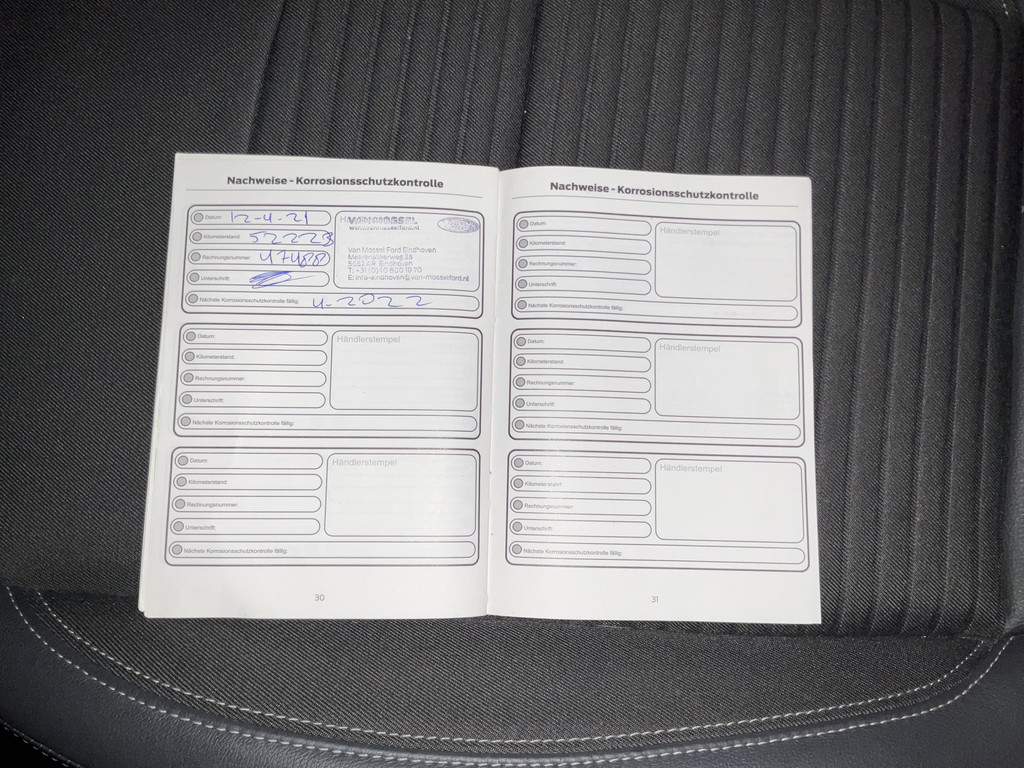 Nachweise - Korrosionsschutzkontrolle
Datum: 12-4-21
Kilometerstand: 52223
Rechnungsnummer: 47488
Unterschrift:
VAN MOSSEL
Van Mossel Ford Eindhoven
5652 AR Eindhoven
Nächste Korrosionsschutzkontrolle fällig: 4-2022
Datum:
Kilometerstand:
Rechnungsnummer:
Unterschrift:
Händlerstempel
Nächste Korrosionsschutzkontrolle fällig:
Datum:
Kilometerstand:
Rechnungsnummer:
Unterschrift:
Händlerstempel
Nächste Korrosionsschutzkontrolle fällig:
30
Nachweise - Korrosionsschutzkontrolle
Datum:
Kilometerstand:
Rechnungsnummer:
Unterschrift:
Händlerstempel
Nächste Korrosionsschutzkontrolle fällig:
Datum:
Kilometerstand:
Rechnungsnummer:
Unterschrift:
Händlerstempel
Nächste Korrosionsschutzkontrolle fällig:
Datum:
Kilometerstand:
Rechnungsnummer:
Unterschrift:
Händlerstempel
Nächste Korrosionsschutzkontrolle fällig:
31